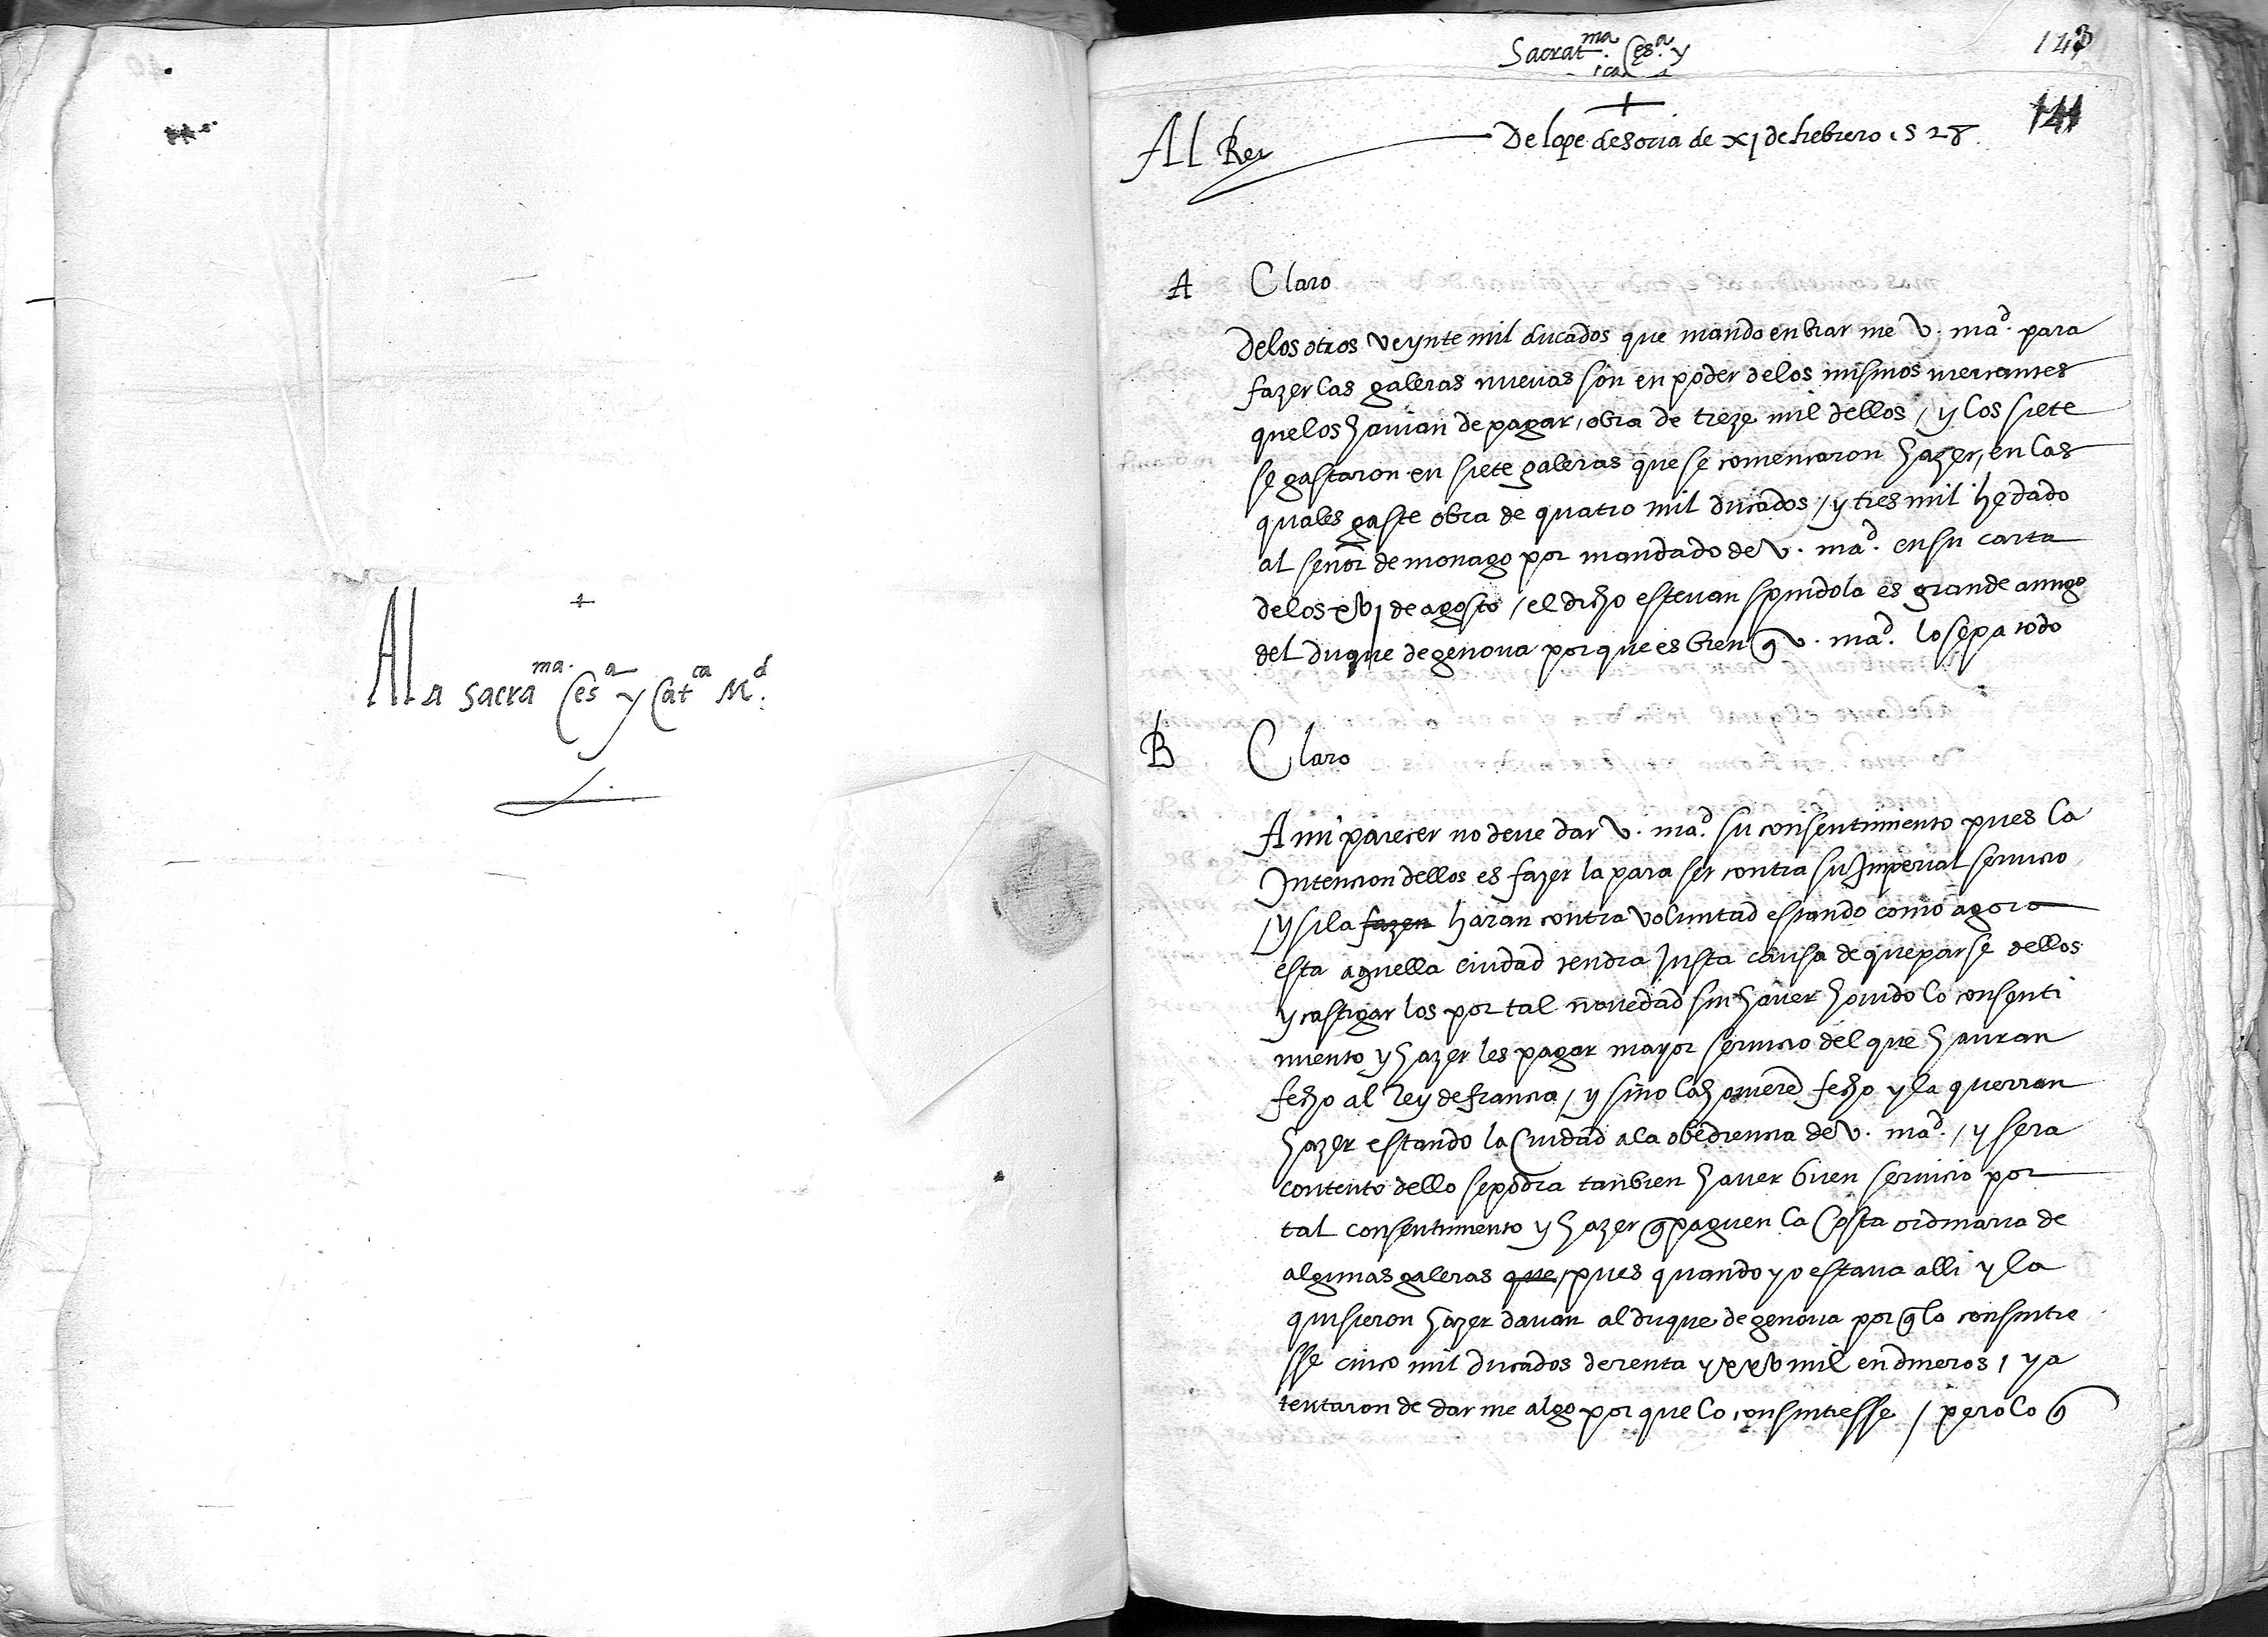 +
Al a Sacra ma. Ces a y Cat ca M d.
Sacrat ma. Ces. a y
143
141
+
Al Rey
De lope de soria de xj de hebrero 1528.
A Claro
De los otros veynte mil ducados que mando enbiar me v. mad. para
fazer las galeras nuevas son en poder de los mismos mercantes
que los havian de pagar, obra de treze mil dellos / y los siete
se gastaron en siete galeras que se comencaron hazer, en las
quales gaste obra de quatro mil ducados / y tres mil he dado
al señor de monago por mandado de v. mad. en su carta
de los xvj de agosto / el dicho estevan spindola es grande amigo
del duque de genova por que es bien q v. mad. lo sepa todo
B Claro
A mi parecer no deve dar v. mad. su consentimiento pues la
Intencion dellos es fazer la para ser contra su Imperial servicio
/ y si la fazen haran contra voluntad estando como agora
esta aquella ciudad tendra Justa causa de quexarse dellos
y castigar los por tal novedad sin haver havido lo consenti
miento y hazer les pagar mayor servicio del que havran
fecho al Rey de francia / y si no la hovieren fecho y la querran
hazer estando la Ciudad a la obediencia de v. mad. / y sera
contento dello se podra tanbien haver buen servicio por
tal consentimiento y hazer q paguen la Costa ordinaria de
algunas galeras que / pues quando yo estava alli y la
quisieron hazer davan al duque de genova por q lo consintie
sse cinco mil ducados de renta y xxv mil en dineros / y a
tentaron de dar me algo por que lo consintiesse / pero lo q